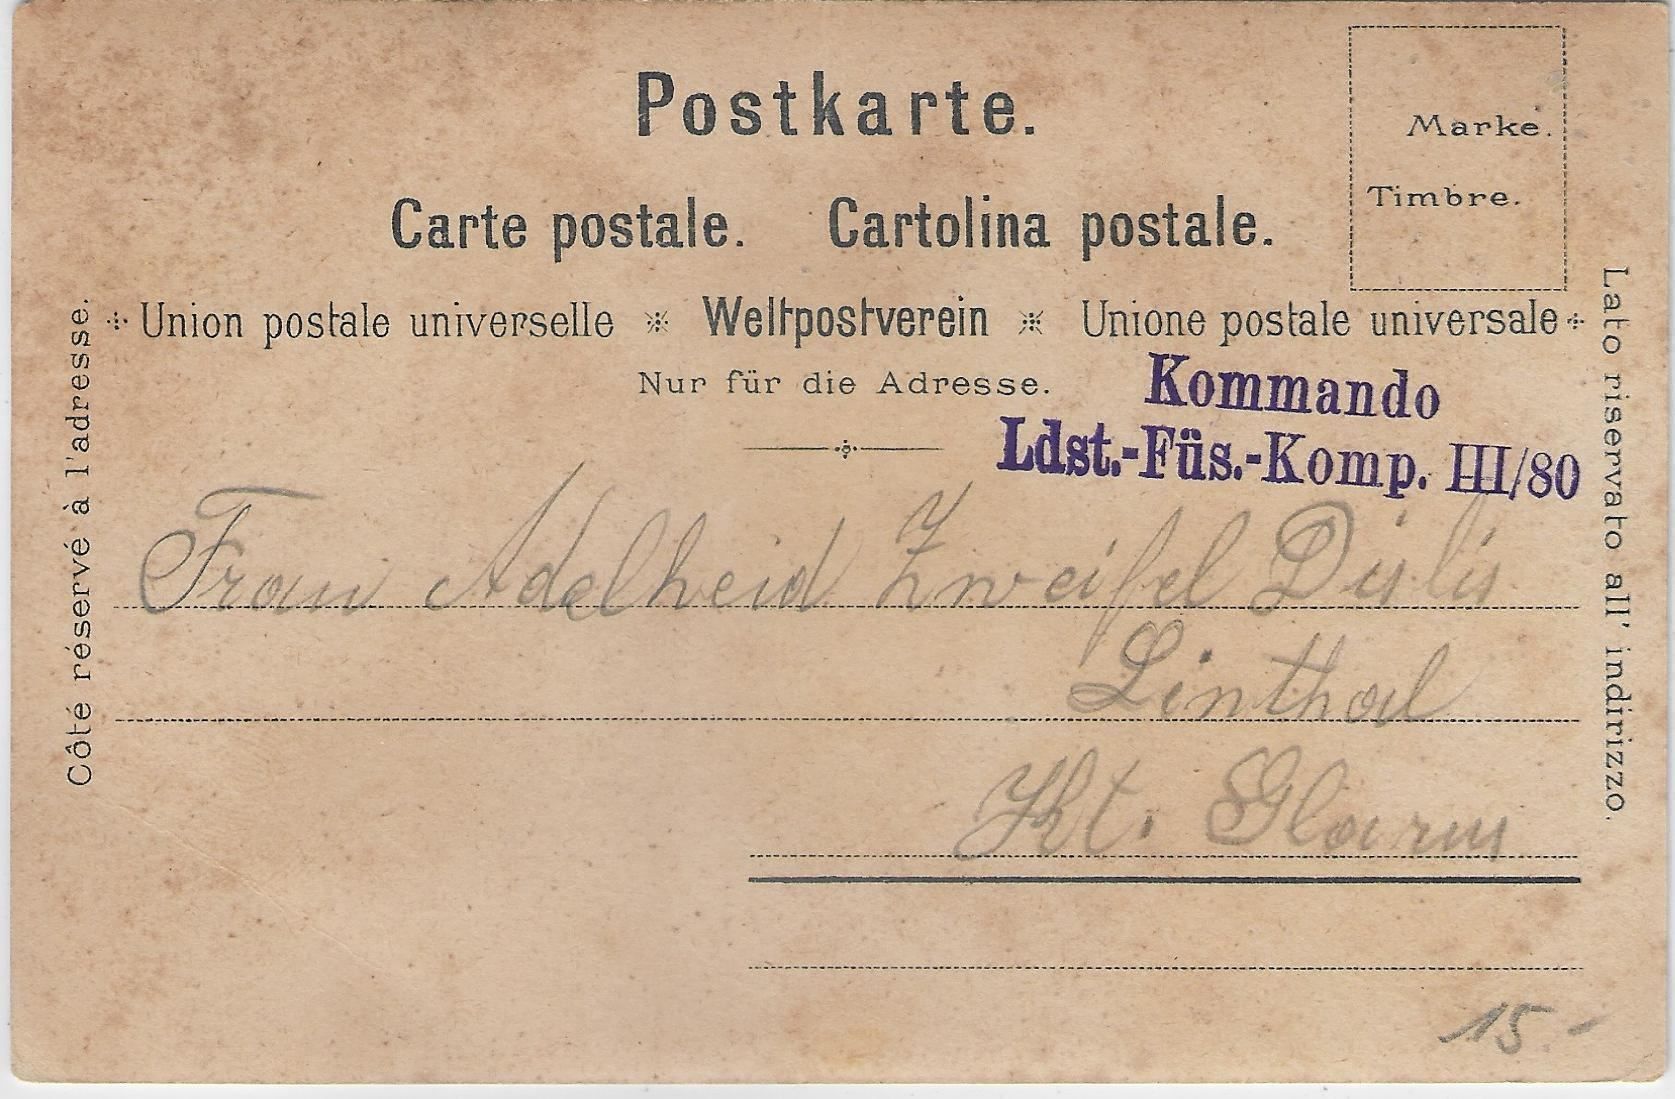 Postkarte.
Marke.
Timbre.
Carte postale. Cartolina postale.
Union postale universelle Weltpostverein Unione postale universale
Nur für die Adresse.
Côté réservé à l'adresse.
Lato riservato all' indirizzo.
Kommando
Ldst.-Füs.-Komp. III/80
Frau Adelheid Zweifel
Linthal
Kt. Glarus
15.-